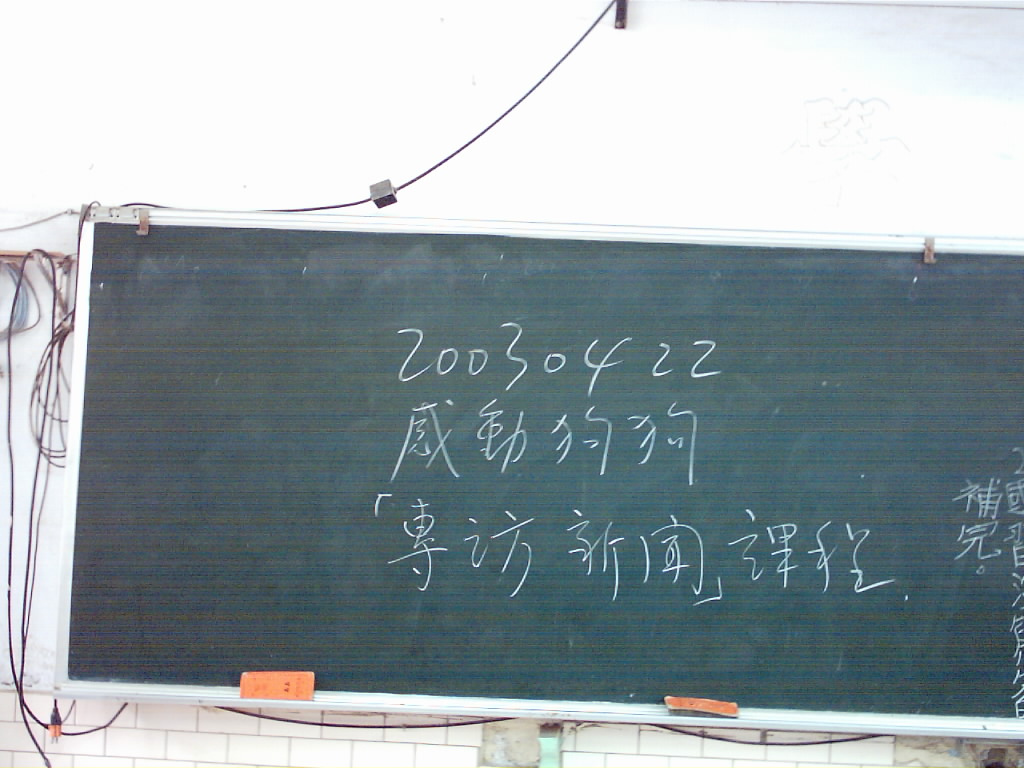 20030422
感動狗狗
「專訪新聞」課程.
國習
補完。